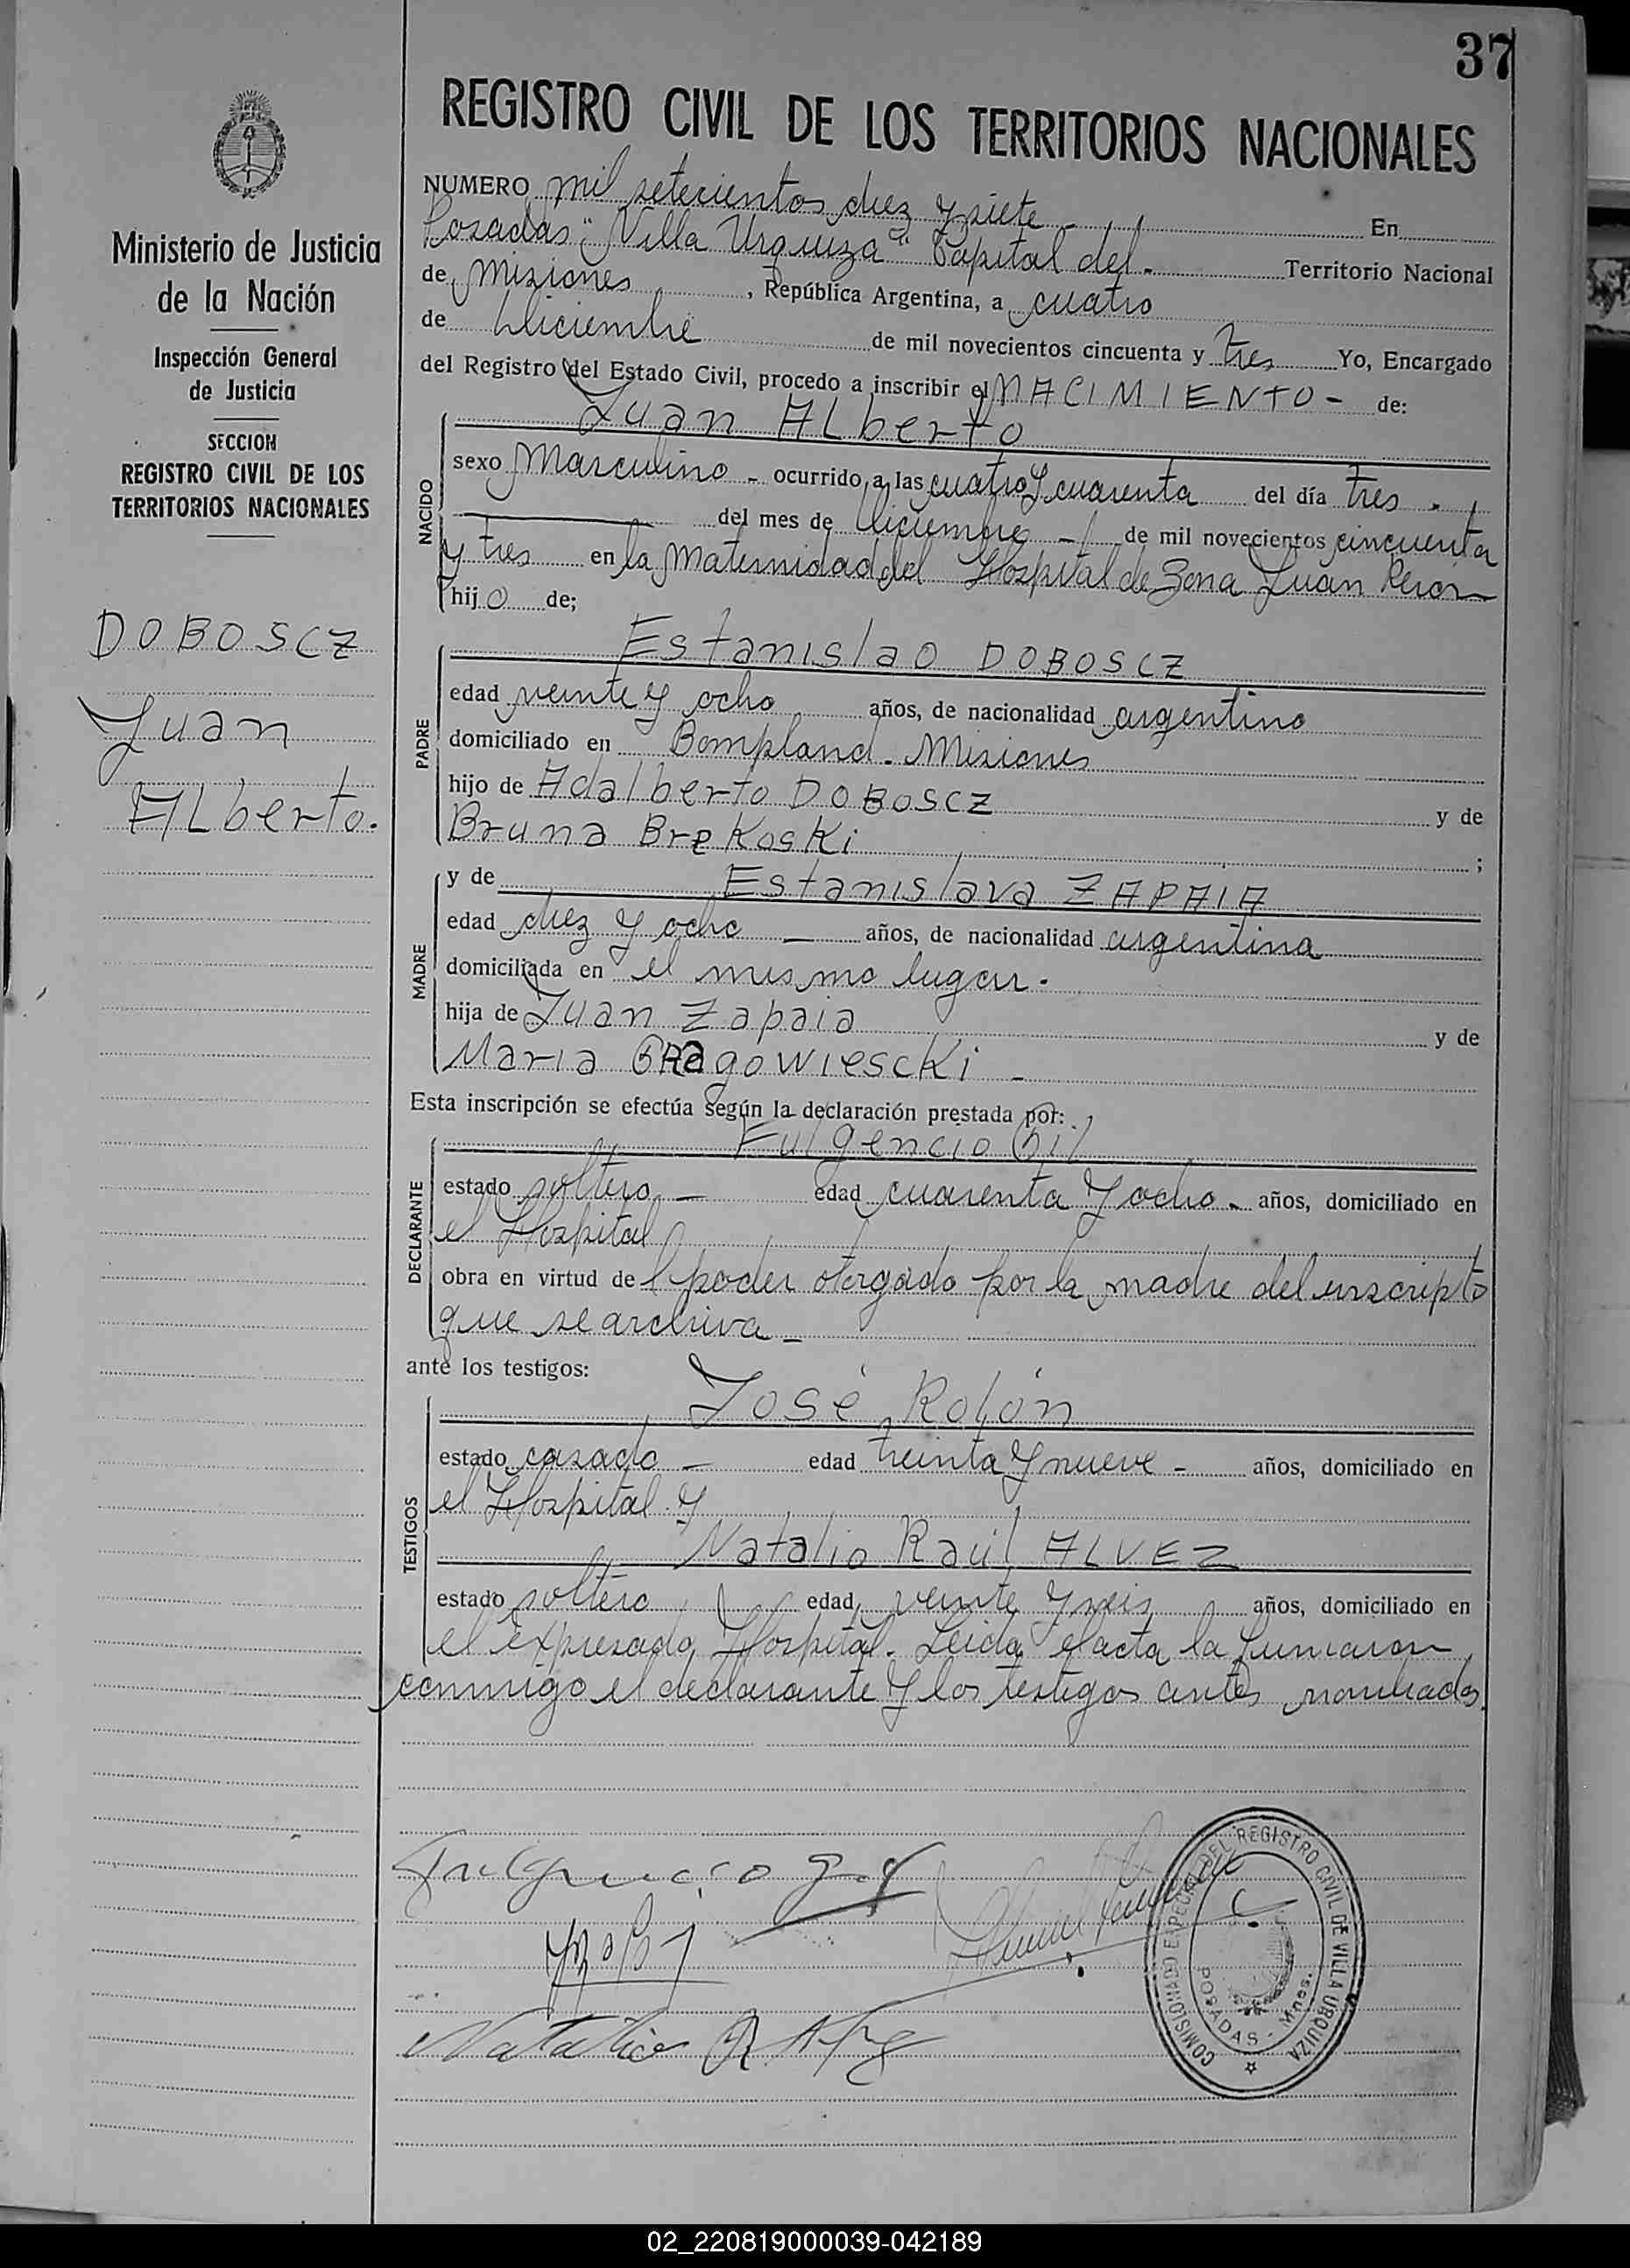 37
REGISTRO CIVIL DE LOS TERRITORIOS NACIONALES
Ministerio de Justicia
de la Nación
Inspección General
de Justicia
SECCION
REGISTRO CIVIL DE LOS
TERRITORIOS NACIONALES
DOBOSCZ
Juan
ALberto.
NUMERO mil setecientos diez y siete - En
Posadas "Villa Urquiza" Capital del - Territorio Nacional
de Misiones , República Argentina, a cuatro
de Diciembre de mil novecientos cincuenta y tres Yo, Encargado
del Registro del Estado Civil, procedo a inscribir el NACIMIENTO - de:
Juan ALberto
NACIDO
sexo Masculino - ocurrido a las cuatro y cuarenta del día tres -
del mes de Diciembre - de mil novecientos cincuenta
y tres en la Maternidad del Hospital de Zona Juan Peron
hijo de;
PADRE
Estanislao DOBOSCZ
edad veinte y ocho años, de nacionalidad argentino
domiciliado en Bompland - Misiones
hijo de Adalberto DOBOSCZ y de
Bruna Brekoski ;
MADRE
y de Estanislava ZAPAIA
edad diez y ocho - años, de nacionalidad argentina
domiciliada en el mismo lugar.
hija de Juan Zapaia y de
Maria GRagowiescki -
Esta inscripción se efectúa según la declaración prestada por:
DECLARANTE
Fulgencio Gil
estado soltero - edad cuarenta y ocho - años, domiciliado en
el Hospital
obra en virtud del poder otorgado por la madre del inscripto
que se archiva -
ante los testigos:
TESTIGOS
José Rolón
estado casado - edad treinta y nueve - años, domiciliado en
el Hospital y
Natalio Raúl ALVEZ
estado soltero edad veinte y seis años, domiciliado en
el expresado Hospital. Leida el acta la firmaron
conmigo el declarante y los testigos antes nombrados.
Fulgencio Gil
Natalio R Alvez
COMISIONADO ESPECIAL DEL REGISTRO CIVIL DE VILLA URQUIZA
POSADAS - Mnes.
02_220819000039-042189